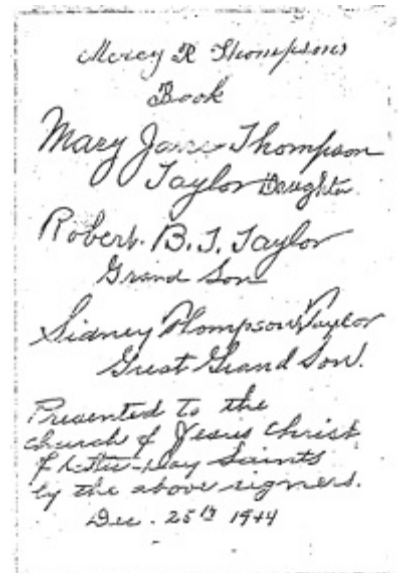 Mercy R Thompsons
Book
Mary Jane Thompson
Taylor Daughter
Robert. B. T. Taylor
Grand Son
Sidney Thompson Taylor
Great Grand Son.
Presented to the
church of Jesus Christ
of Latter-Day Saints
by the above signers.
Dec. 25th 1944